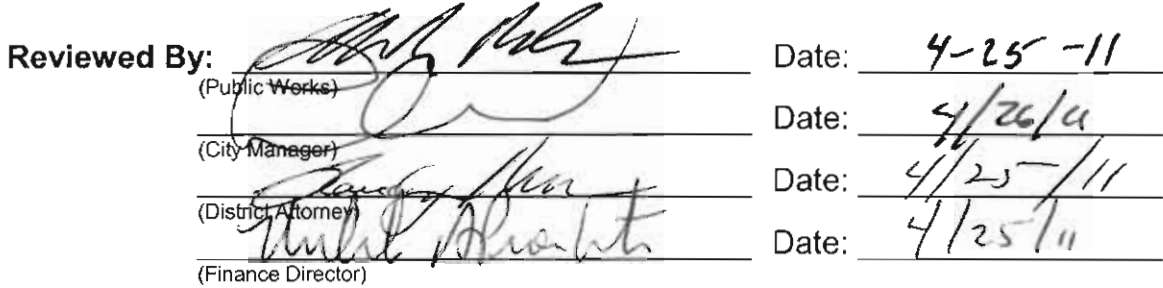 Reviewed By: Date: 4-25-11
(Public Works)
Date: 4/26/11
(City Manager)
Date: 4/25/11
(District Attorney)
Date: 4/25/11
(Finance Director)